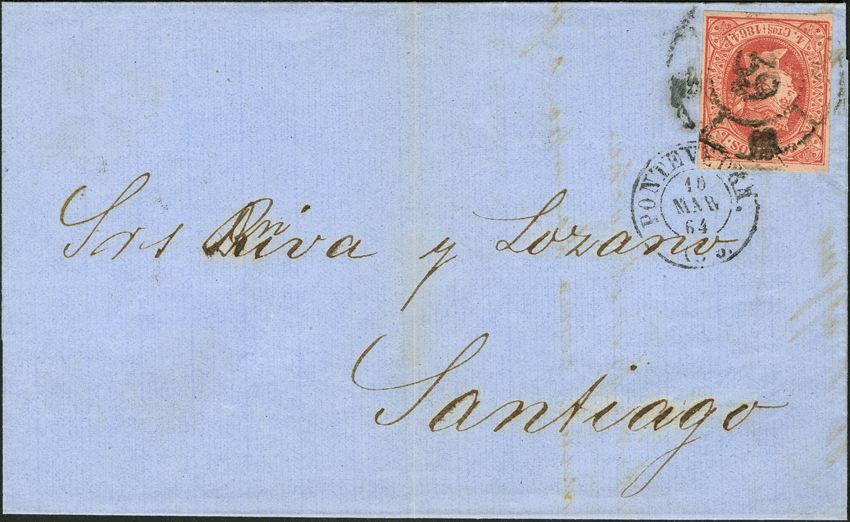 4 Ctos 1864
PONTEVEDRA.
10
MAR
64
Srs Riva y Lozano
Santiago